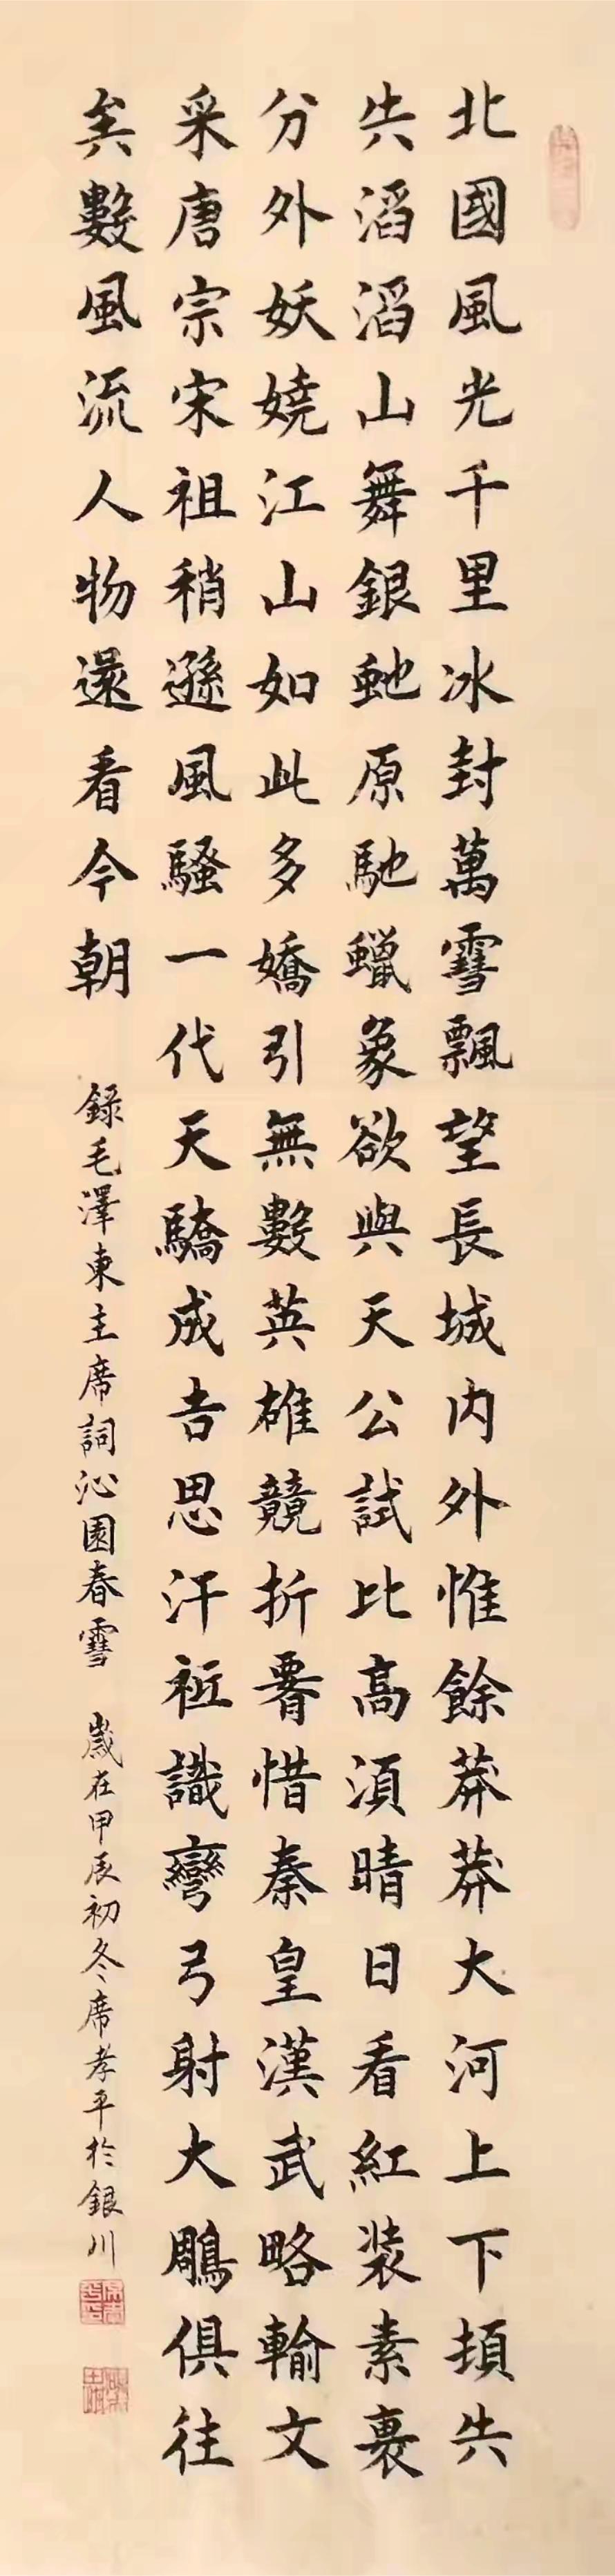 北國風光千里冰封萬雪飄望長城内外惟餘莽莽大河上下頓失
失滔滔山舞銀虵原馳蠟象欲與天公試比高湏晴日看紅装素裹
分外妖嬈江山如此多嬌引無數英雄競折腰惜秦皇漢武略輸文
采唐宗宋祖稍遜風騷一代天驕成吉思汗祗識彎弓射大鵰俱往
矣數風流人物還看今朝
錄毛澤東主席詞沁園春雪 歲在甲辰初冬席孝平於銀川